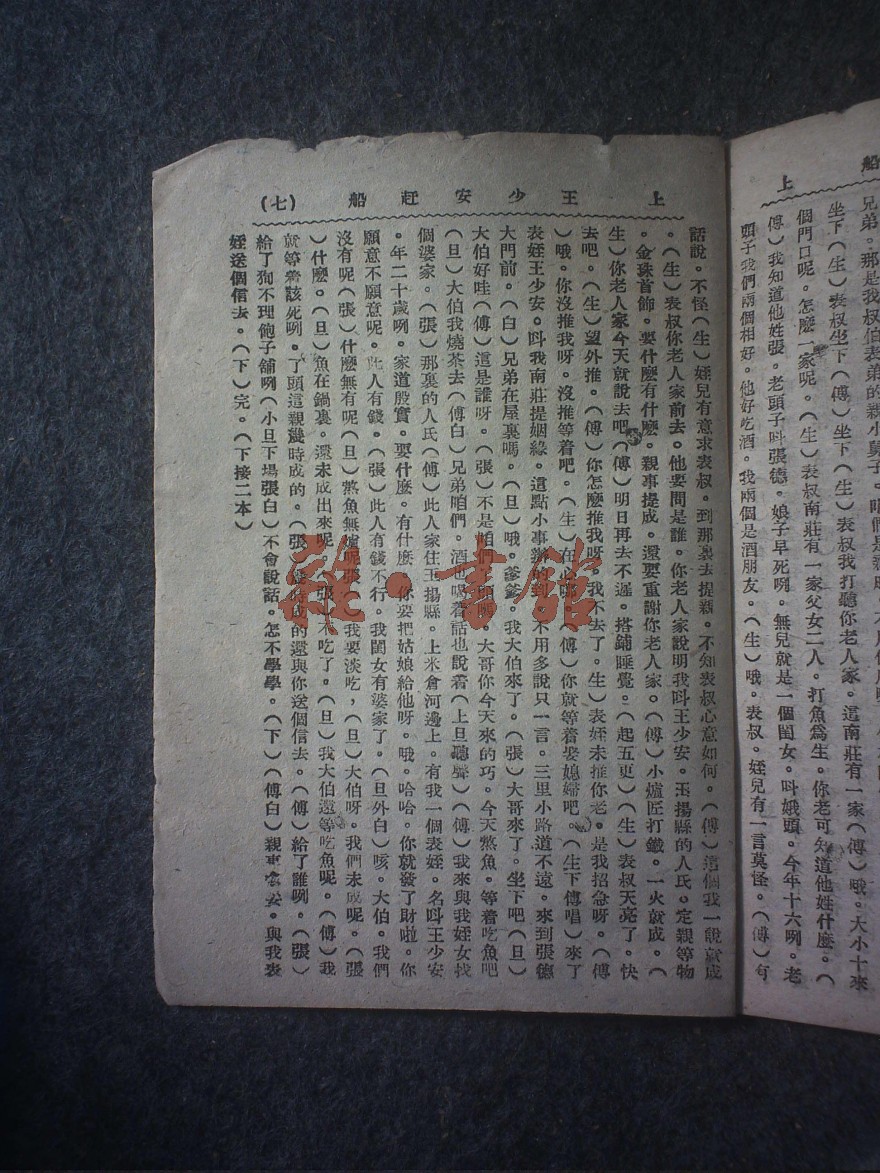 船　上
兄弟。那是我叔伯表弟的親小舅子。咱們是
坐下（生）表叔坐下（傅）坐下（生）表叔我打聽你老人家。這南莊有一家（傅）哦。大小十來
個門口呢。怎麽一家呢。（生）表叔南莊有一家父女二人。打魚爲生。你老可知道他姓什麽。（
傅）我知道他姓張。老頭子叫張德。娘子早死咧。無兒就是一個閨女。叫娥頭。今年十六咧。老
頭子我們兩個相好。他好吃酒。我兩個是酒朋友。（生）哦。表叔。姪兒有一言莫怪。（傅）有
上　王少安赶船　（七）
話說。不怪（生）姪兒有意求表叔。到那裏去提親。不知表叔心意如何。（傅）這個我一說就成
。（生）表叔你老人家前去。他要問是誰。你老人家說明我叫王少安。玉揚縣的人氏。定親等物
。金珠首飾。要什麽有什麽。親事提成。還要重謝你老人家。（傅）小爐匠打鐵。一火就成。（
生）你老人家今天就說去吧（傅）明日再去不遲。搭鋪睡覺。（起五更）（生）表叔天亮了。快
去吧。（生）望外推。（傅）你怎麽推我呀。我不去了。生）表姪未推你老。是我招急呀。（傅
）哦。你沒推我呀。沒推等着吧。（生）在心哪。（傅）你就等着娶媳婦吧。（生下傅唱）來了
表姪王少安。叫我南莊提姻緣。這點小事辦的到。不用多說只一言。三里小路道不遠。來到張德
大門前。（白）兄弟在屋裏嗎。（旦）哦。爹爹。我大伯來了。（張）大哥來了。坐下吧（旦）
大伯好哇（傅）這是誰呀。（張）不是咱們頭嗎。大哥你今天來的巧。今天熬魚。等着吃魚吧
（旦）大伯我燒茶去（傅白）兄弟咱們。酒也喝着話也說着（上旦聽聲）（傅）我來與我姪女找
個婆家。（張）那裏的人氏（傅）此人家住玉揚縣。上米倉河邊上。有我一個表姪。名叫王少安
。年二十歲咧。家道殷實。要什麽。有什麽。你要把姑娘給他呀。哦。哈哈。你就發了財啦。你
願意不願意呢。此人有錢。（張）此人有錢不行。我閨女有婆家了。（旦外白）咳。大伯。我們
沒有呢（張）什麽無有呢（旦）熬魚無爐呢張）我要淡吃，（旦）大伯呀。我們未成呢。（張
）什麽。（旦）魚在鍋裏。還未成出來呢。（張）不吃了。（旦）我大伯還等吃魚呢。（傅）我
就等着該死咧。了頭這親幾時成的。（張）幾時成的還與你送個信去。（傅）給了誰咧。（張）
給了狗不理飽子舖咧（小旦下場張白）不會說話。怎不學學。（下）（傅白）親事念妥。與我表
姪送個信去。（下）完。（下接二本）
雜·書館